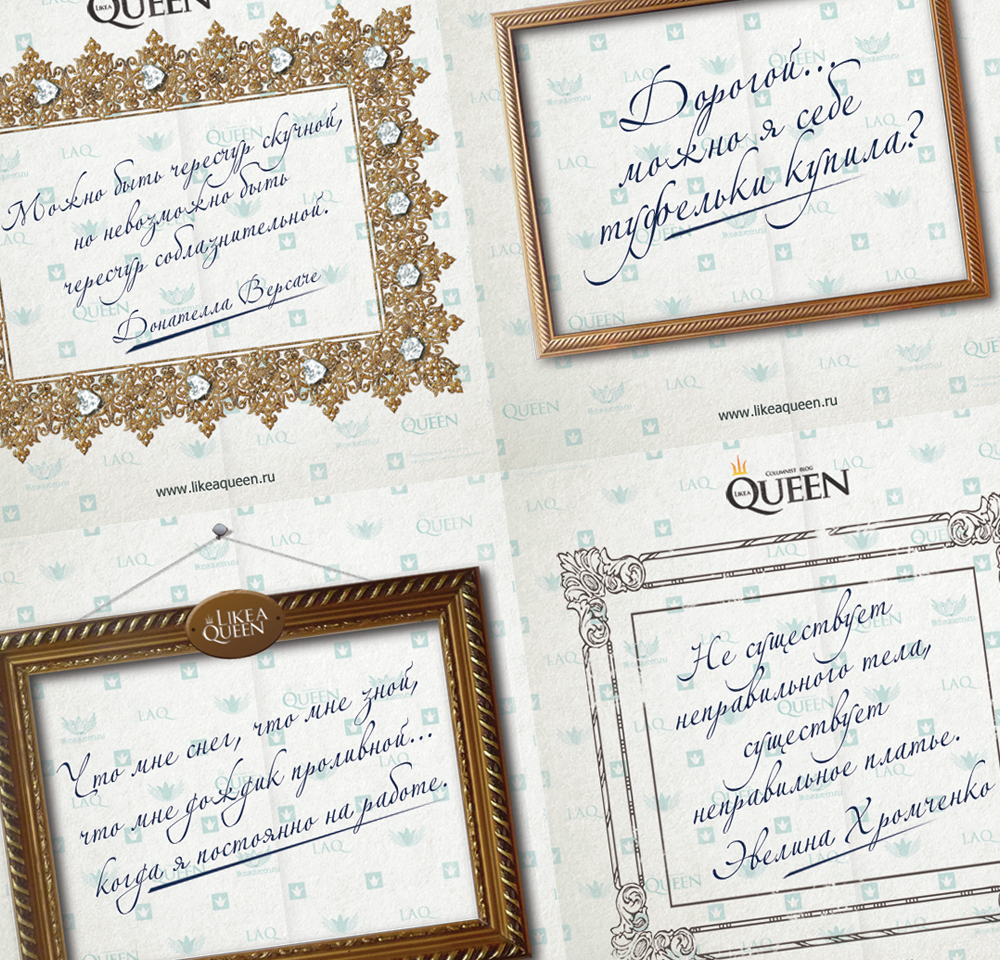 LIKEA QUEEN
Можно быть чересчур скучной,
но невозможно быть
чересчур соблазнительной.
Донателла Версаче
www.likeaqueen.ru
Дорогой...
можно я себе
туфельки купила?
www.likeaqueen.ru
LIKE A
QUEEN
Что мне снег, что мне зной,
что мне дождик проливной...
когда я постоянно на работе.
COLUMNIST BLOG
LIKEA QUEEN
Не существует
неправильного тела,
существует
неправильное платье.
Эвелина Хромченко
LAQ
QUEEN